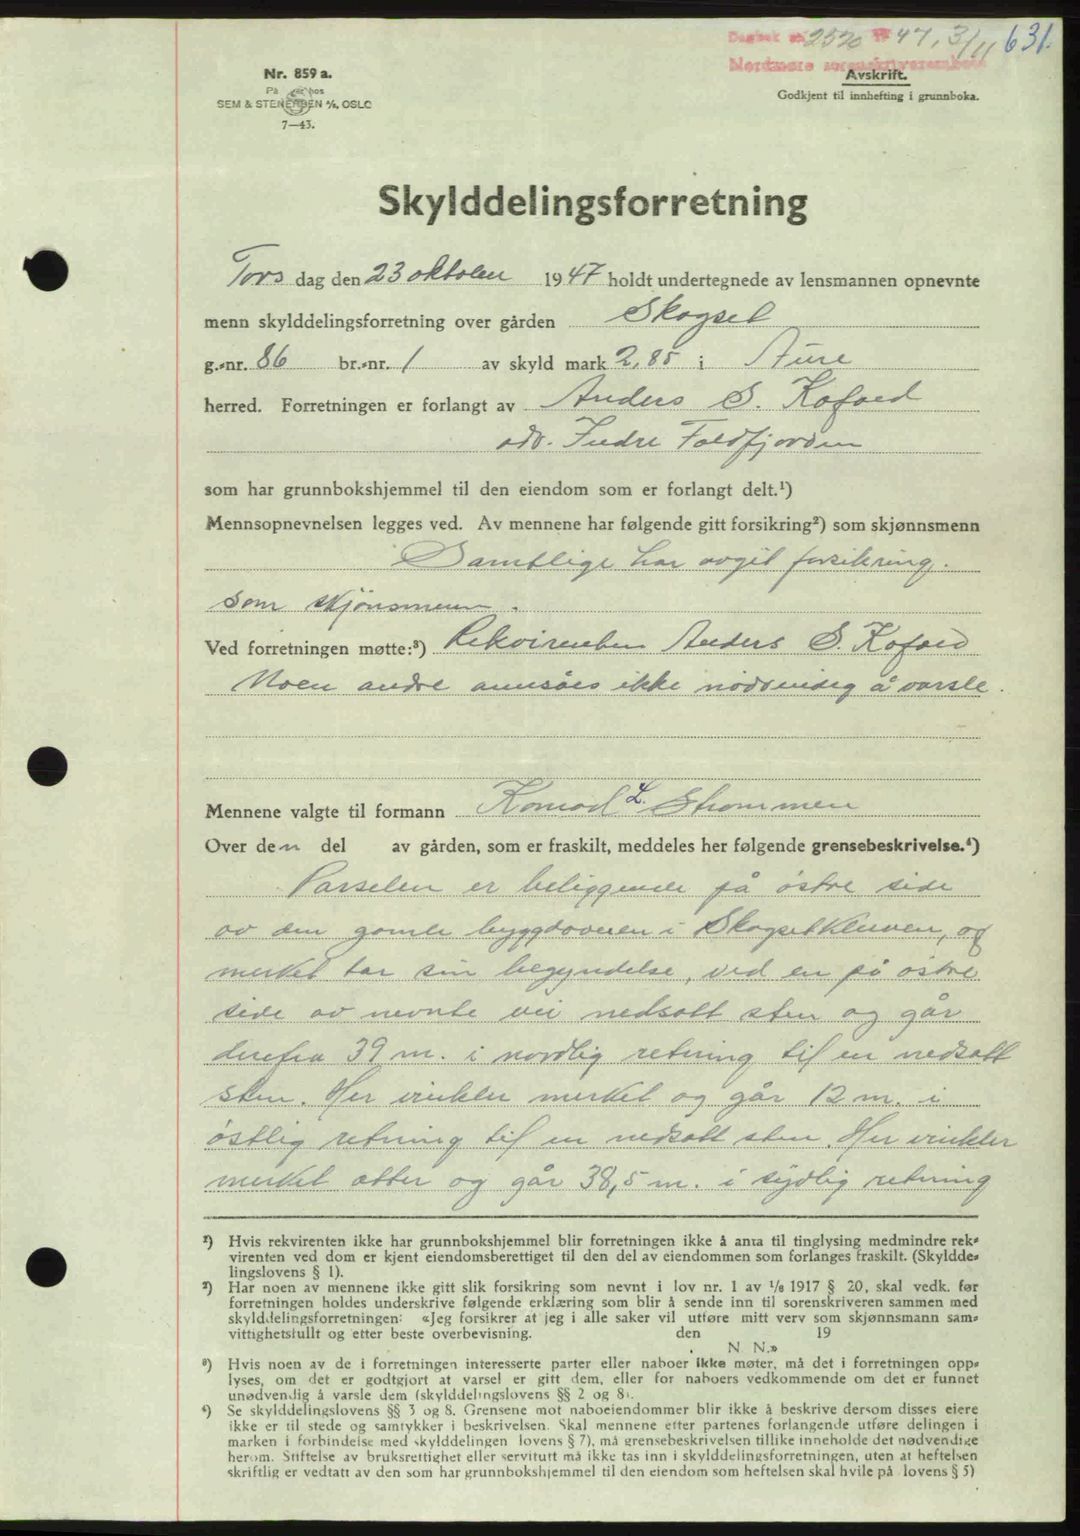 Dagbok nr. 2520 19 47, 3/11 631.
Nordmøre sorenskriverembete
Nr. 859 a.
På lager hos
SEM & STENERSEN A/S, OSLO
7—43.
Avskrift.
Godkjent til innhefting i grunnboka.
Skylddelingsforretning
Torsdag den 23 oktober 1947 holdt undertegnede av lensmannen opnevnte
menn skylddelingsforretning over gården Skogset
g.-nr. 86 br.-nr. 1 av skyld mark 2,85 i Aure
herred. Forretningen er forlangt av Anders S. Kofoed
adr. Indre Foldfjorden
som har grunnbokshjemmel til den eiendom som er forlangt delt.¹)
Mennsopnevnelsen legges ved. Av mennene har følgende gitt forsikring²) som skjønnsmenn
Samtlige har avgit forsikring.
som skjønsmenn.
Ved forretningen møtte:³) Rekvirenten Anders S. Kofoed
Noen andre ansåes ikke nødvendig å varsle.
Mennene valgte til formann Konrad L. Strømmen
Over den del av gården, som er fraskilt, meddeles her følgende grensebeskrivelse.⁴)
Parselen er beliggende på østre side
av den gamle bygdaveien i Skogsetkleiven, og
merket tar sin begyndelse, ved en på østre
side av nevnte vei nedsatt sten og går
derefra 39 m. i nordlig retning til en nedsatt
sten. Her vinkler merket og går 12 m. i
østlig retning til en nedsatt sten. Her vinkler
merket atter og går 38,5 m. i sydlig retning
¹) Hvis rekvirenten ikke har grunnbokshjemmel blir forretningen ikke å anta til tinglysing medmindre rek-
virenten ved dom er kjent eiendomsberettiget til den del av eiendommen som forlanges fraskilt. (Skyldde-
lingslovens § 1).
²) Har noen av mennene ikke gitt slik forsikring som nevnt i lov nr. 1 av 1/6 1917 § 20, skal vedk. før
forretningen holdes underskrive følgende erklæring som blir å sende inn til sorenskriveren sammen med
skylddelingsforretningen: «Jeg forsikrer at jeg i alle saker vil utføre mitt verv som skjønnsmann sam-
vittighetsfullt og etter beste overbevisning. den 19
N. N.»
³) Hvis noen av de i forretningen interesserte parter eller naboer ikke møter, må det i forretningen opp-
lyses, om det er godtgjort at varsel er gitt dem, eller for naboers vedkommende om det er funnet
unødvendig å varsle dem (skylddelingslovens §§ 2 og 8).
⁴) Se skylddelingslovens §§ 3 og 8. Grensene mot naboeiendommer blir ikke å beskrive dersom disses eiere
ikke er til stede og samtykker i beskrivelsen. Skal mennene etter partenes forlangende utføre delingen i
marken i forbindelse med skylddelingen lovens § 7), må grensebeskrivelsen tillike inneholde det nødvendige
herom. Stiftelse av bruksrettighet eller servitutt må ikke tas inn i skylddelingsforretningen, uten at heftelsen
skriftlig er vedtatt av den som har grunnbokshjemmel til den eiendom som heftelsen skal hvile på lovens § 5)